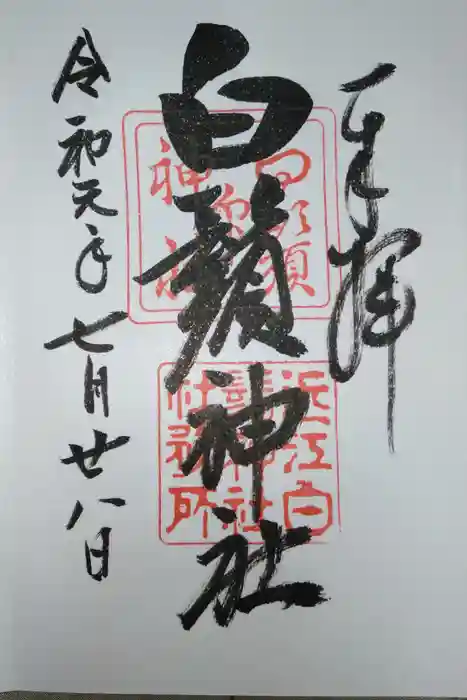 奉拝
白鬚神社
令和元年七月廿八日
近江白
鬚神社
社務所